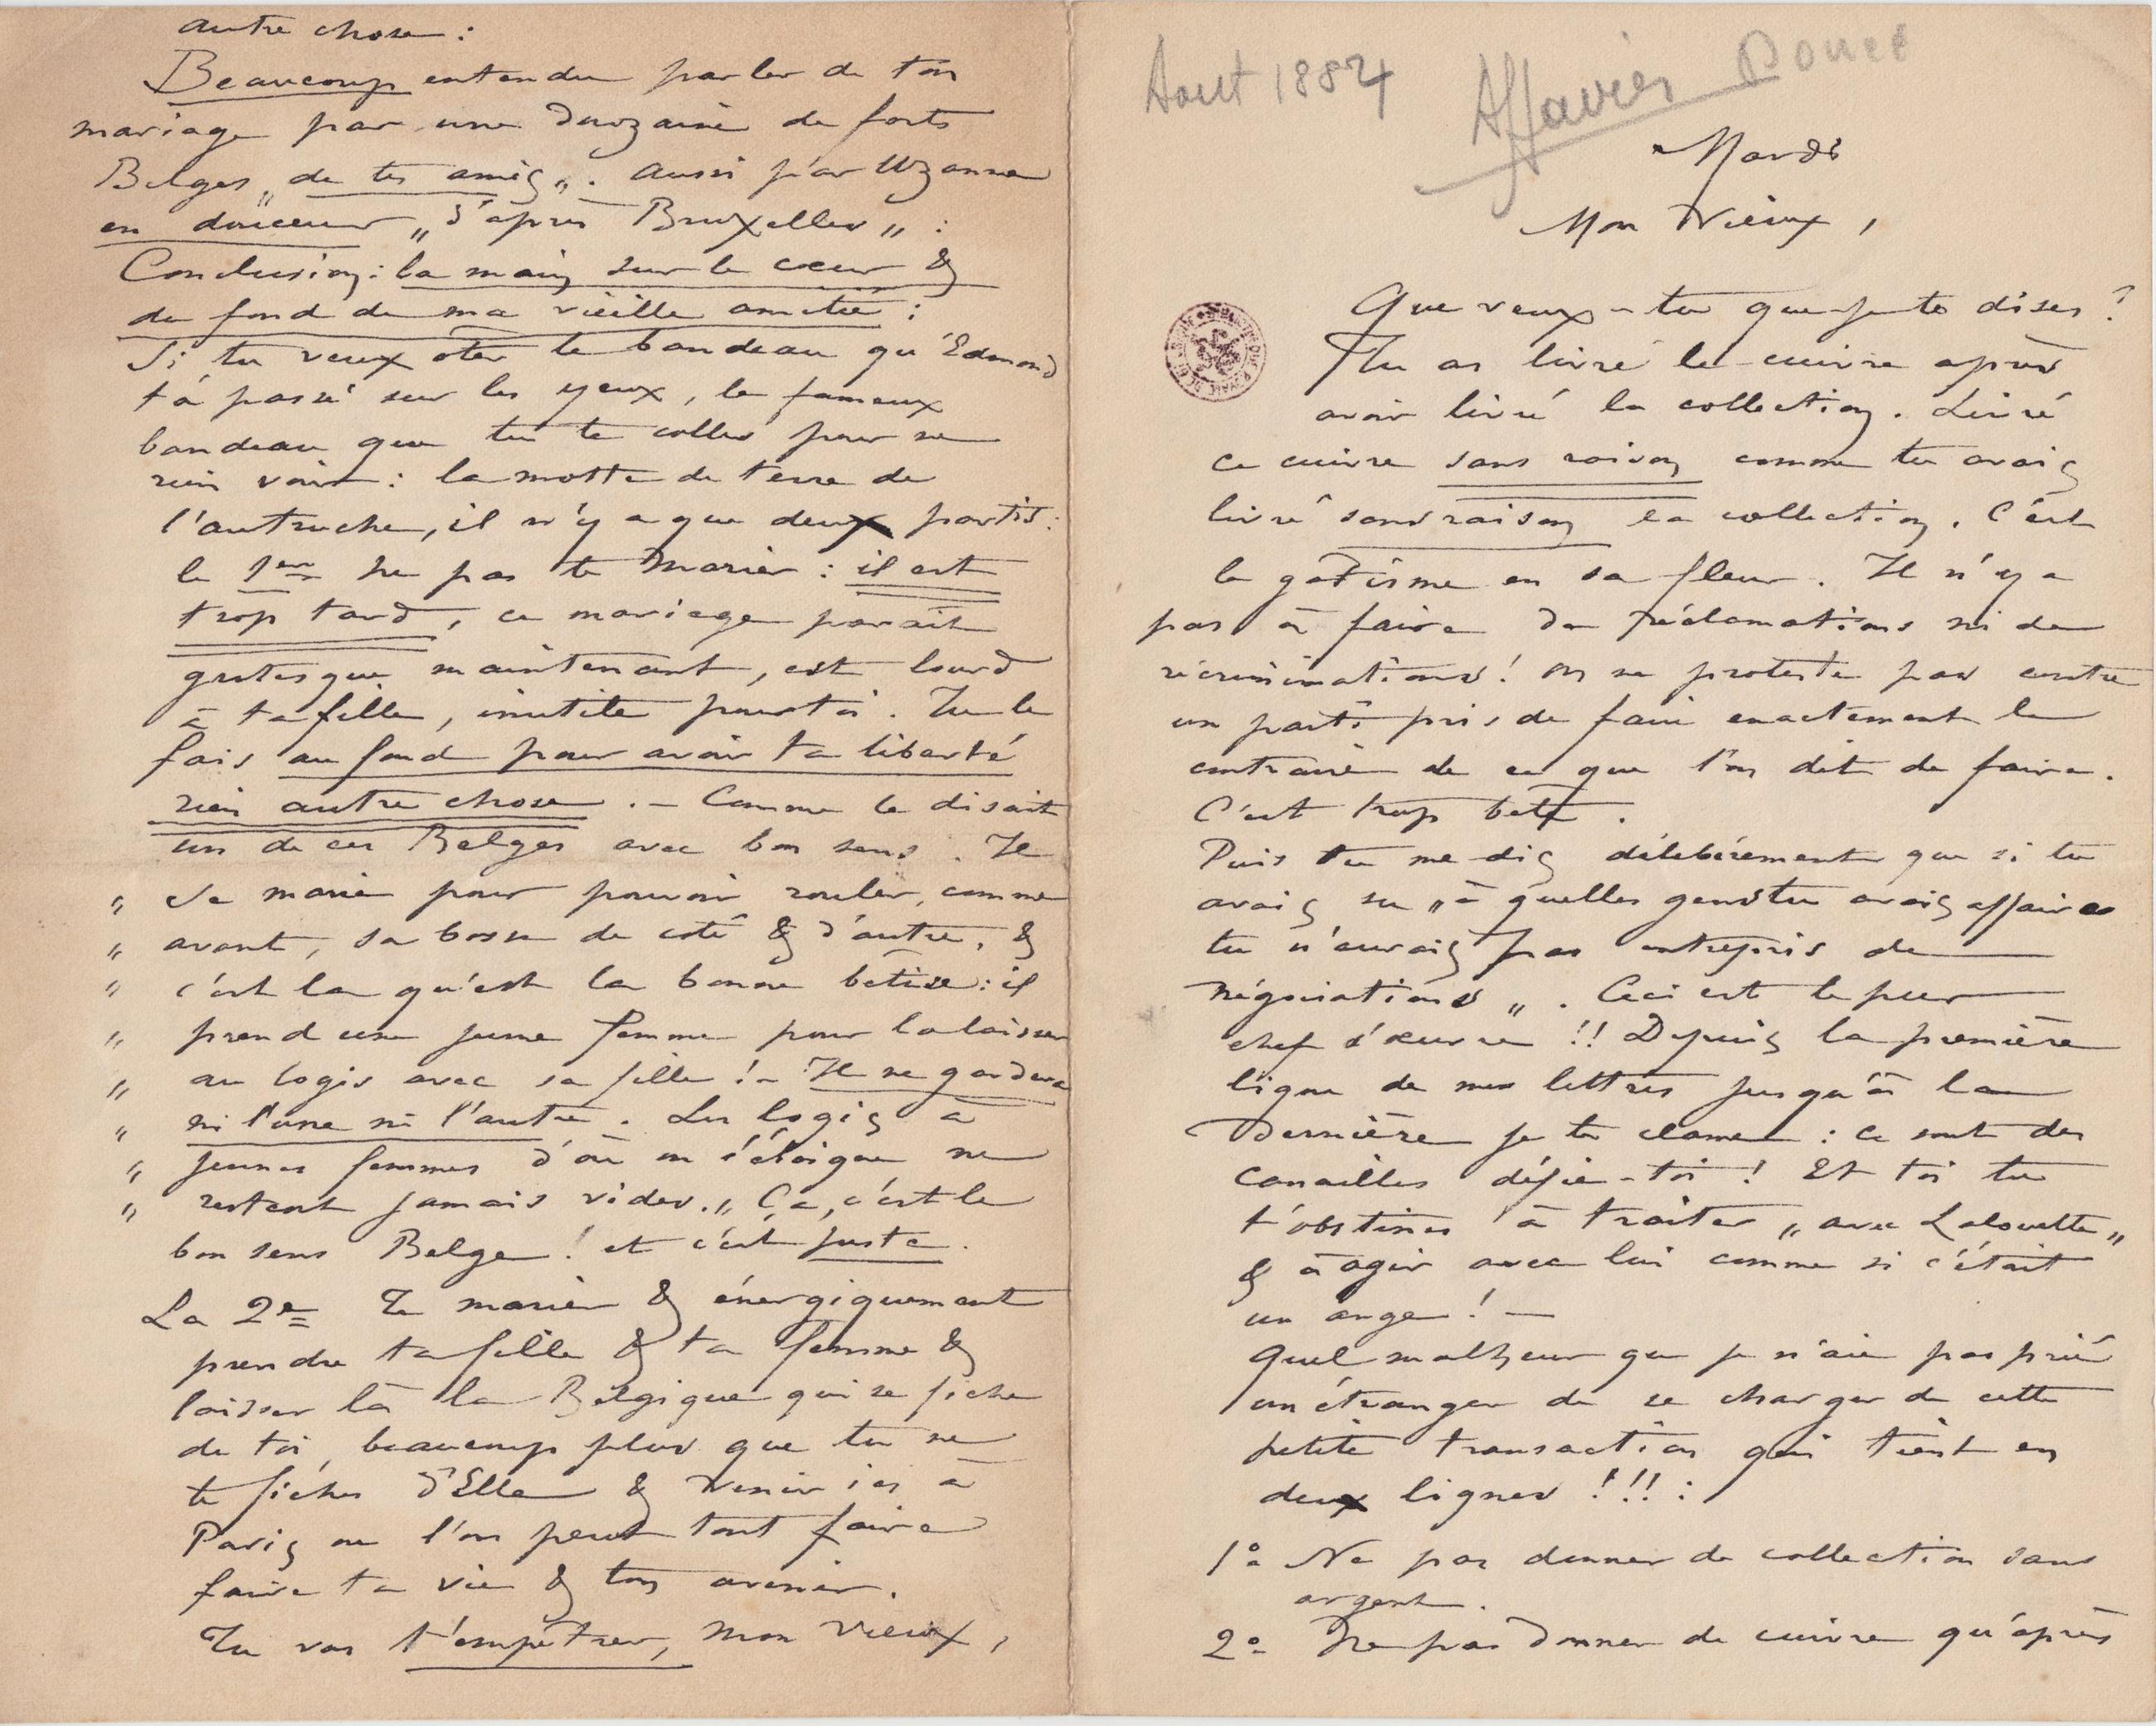 Aout 1884
Affaire Pouce
Mardi
Mon Vieux,
Que veux-tu que je te dises?
Tu as livré le cuivre après
avoir livré la collection. Livré
ce cuivre sans raison comme tu avais
livré sans raison la collection. C'est
le gatisme en sa fleur. Il n'y a
pas à faire de réclamations ni de
récriminations! On ne proteste pas contre
un parti pris de faire exactement le
contraire de ce que l'on dit de faire.
C'est trop bête.
Puis tu me dis délibérement que si tu
avais su „à quelles gens tu avais affaires
tu n'aurais pas entrepris de
négociations„. Ceci est le pur
chef d'œuvre!! Depuis la première
ligne de mes lettres jusqu'à la
dernière je te clame: ce sont des
canailles défie-toi! Et toi tu
t'obstines à traiter „avec Lalouette„
& à agir avec lui comme si c'était
un ange! —
Quel malheur que je n'aie pas prié
un étranger de se charger de cette
petite transaction qui tient en
deux lignes!!!:
1° Ne pas donner de collection sans
argent.
2° Ne pas donner de cuivre qu'après
autre chose:
Beaucoup entendu parler de ton
mariage par une douzaine de forts
Belges „de tes amis„. Aussi par Uzanne
en douceur „d'après Bruxelles„:
Conclusion: la main sur le cœur &
du fond de ma vieille amitié:
Si tu veux oter le bandeau qu'Edmond
t'a passé sur les yeux, le fameux
bandeau que tu te colles pour ne
rien voir: la motte de terre de
l'autruche, il n'y a que deux partis:
le 1er ne pas te marier: il est
trop tard, ce mariage parait
grotesque maintenant, est lourd
à ta fille, inutile pour toi. Tu le
fais au fond pour avoir ta liberté
rien autre chose. – Comme le disait
un de ces Belges avec bon sens. Il
„ se marie pour pouvoir rouler, comme
„ avant, sa bosse de coté & d'autre, &
„ c'est la qu'est la bonne bêtise: il
„ prend une jeune femme pour la laisser
„ au logis avec sa fille! – Il ne gardera
„ ni l'une ni l'autre. Les logis à
„ jeunes femmes d'où on s'éloigne ne
„ restent jamais vides.„ Ça, c'est le
bon sens Belge! et c'est juste.
La 2e Te marier & énergiquement
prendre ta fille & ta femme &
laisser là la Belgique qui se fiche
de toi, beaucoup plus que tu ne
te fiches d'Elle & venir ici à
Paris ou l'on peut tout faire
faire ta vie & ton avenir.
Tu vas t'empêtrer, mon vieux,